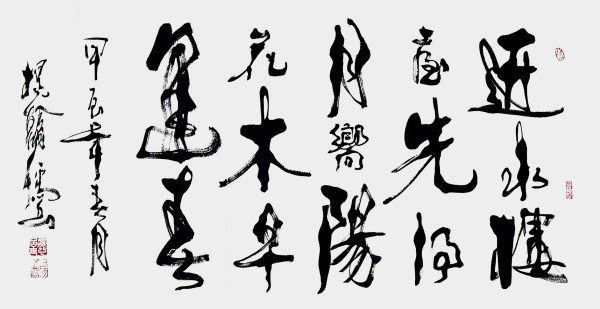 近水樓
臺先得
月嚮陽
花木早
逢春
甲辰年春月